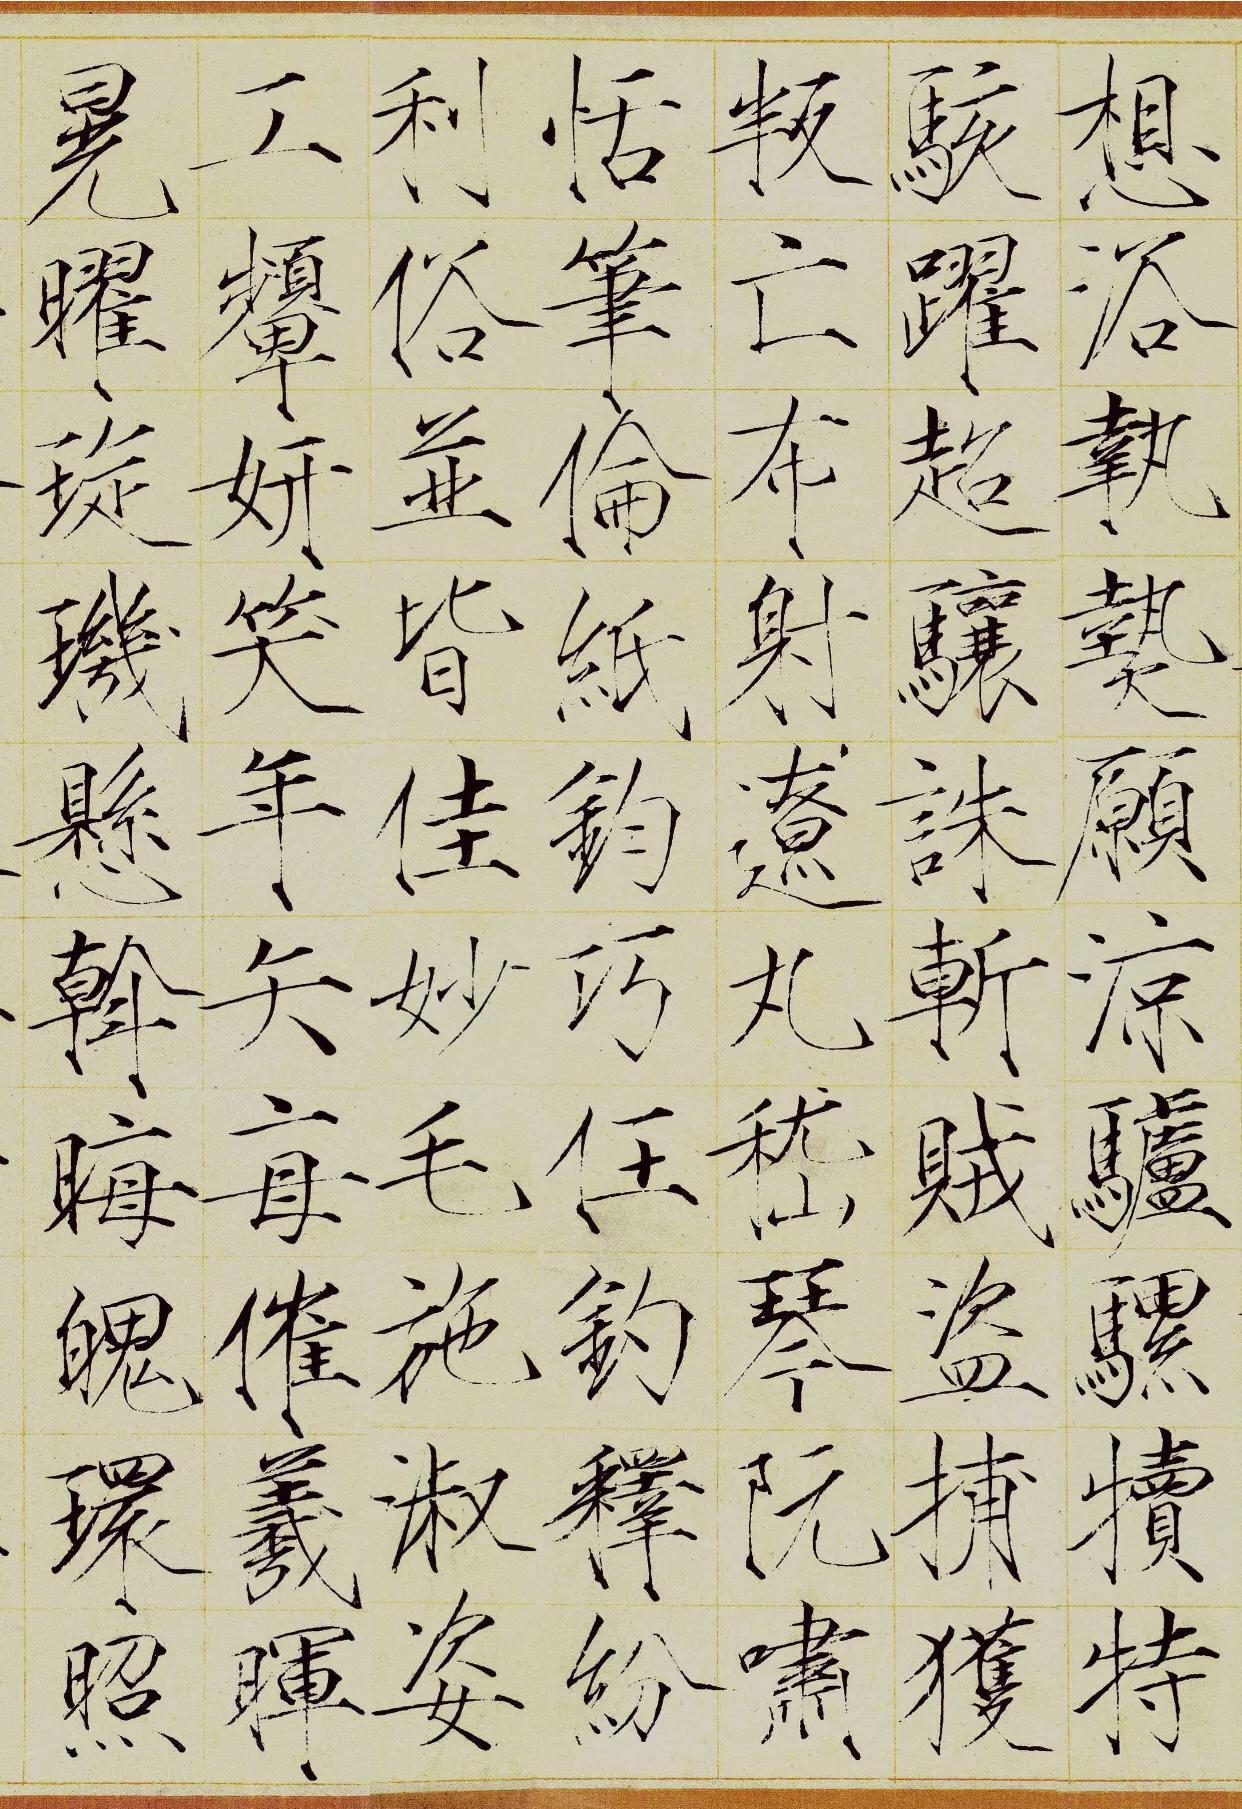 想浴執𤍠願涼驢騾犢特
駭躍超驤誅斬賊盜捕獲
叛亡布射遼丸嵇琴阮嘯
恬筆倫紙鈞巧任釣釋紛
利俗並皆佳妙毛施淑姿
工顰妍笑年矢每催羲暉
晃曜琁璣懸斡晦魄環照